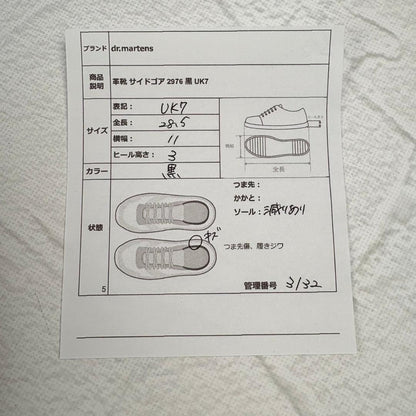 ブランド dr.martens
商品説明 革靴 サイドゴア 2976 黒 UK7
サイズ
表記： UK7
全長： 28.5
横幅： 11
ヒール高さ： 3
カラー 黒
横幅
ヒール高さ
全長
状態
つま先：
かかと：
ソール： 減りあり
キズ
つま先傷、履きジワ
5
管理番号 3132